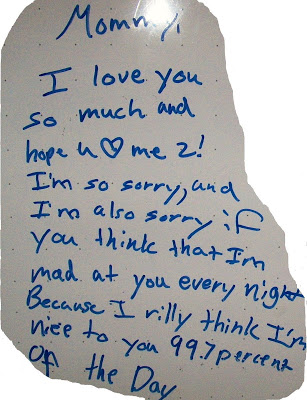 Mommy,
I love you
so much and
hope u ♡ me 2!
I'm so sorry, and
I'm also sorry if
you think that I'm
mad at you every night
Because I rilly think I'm
nice to you 99.7 percent
Of the Day